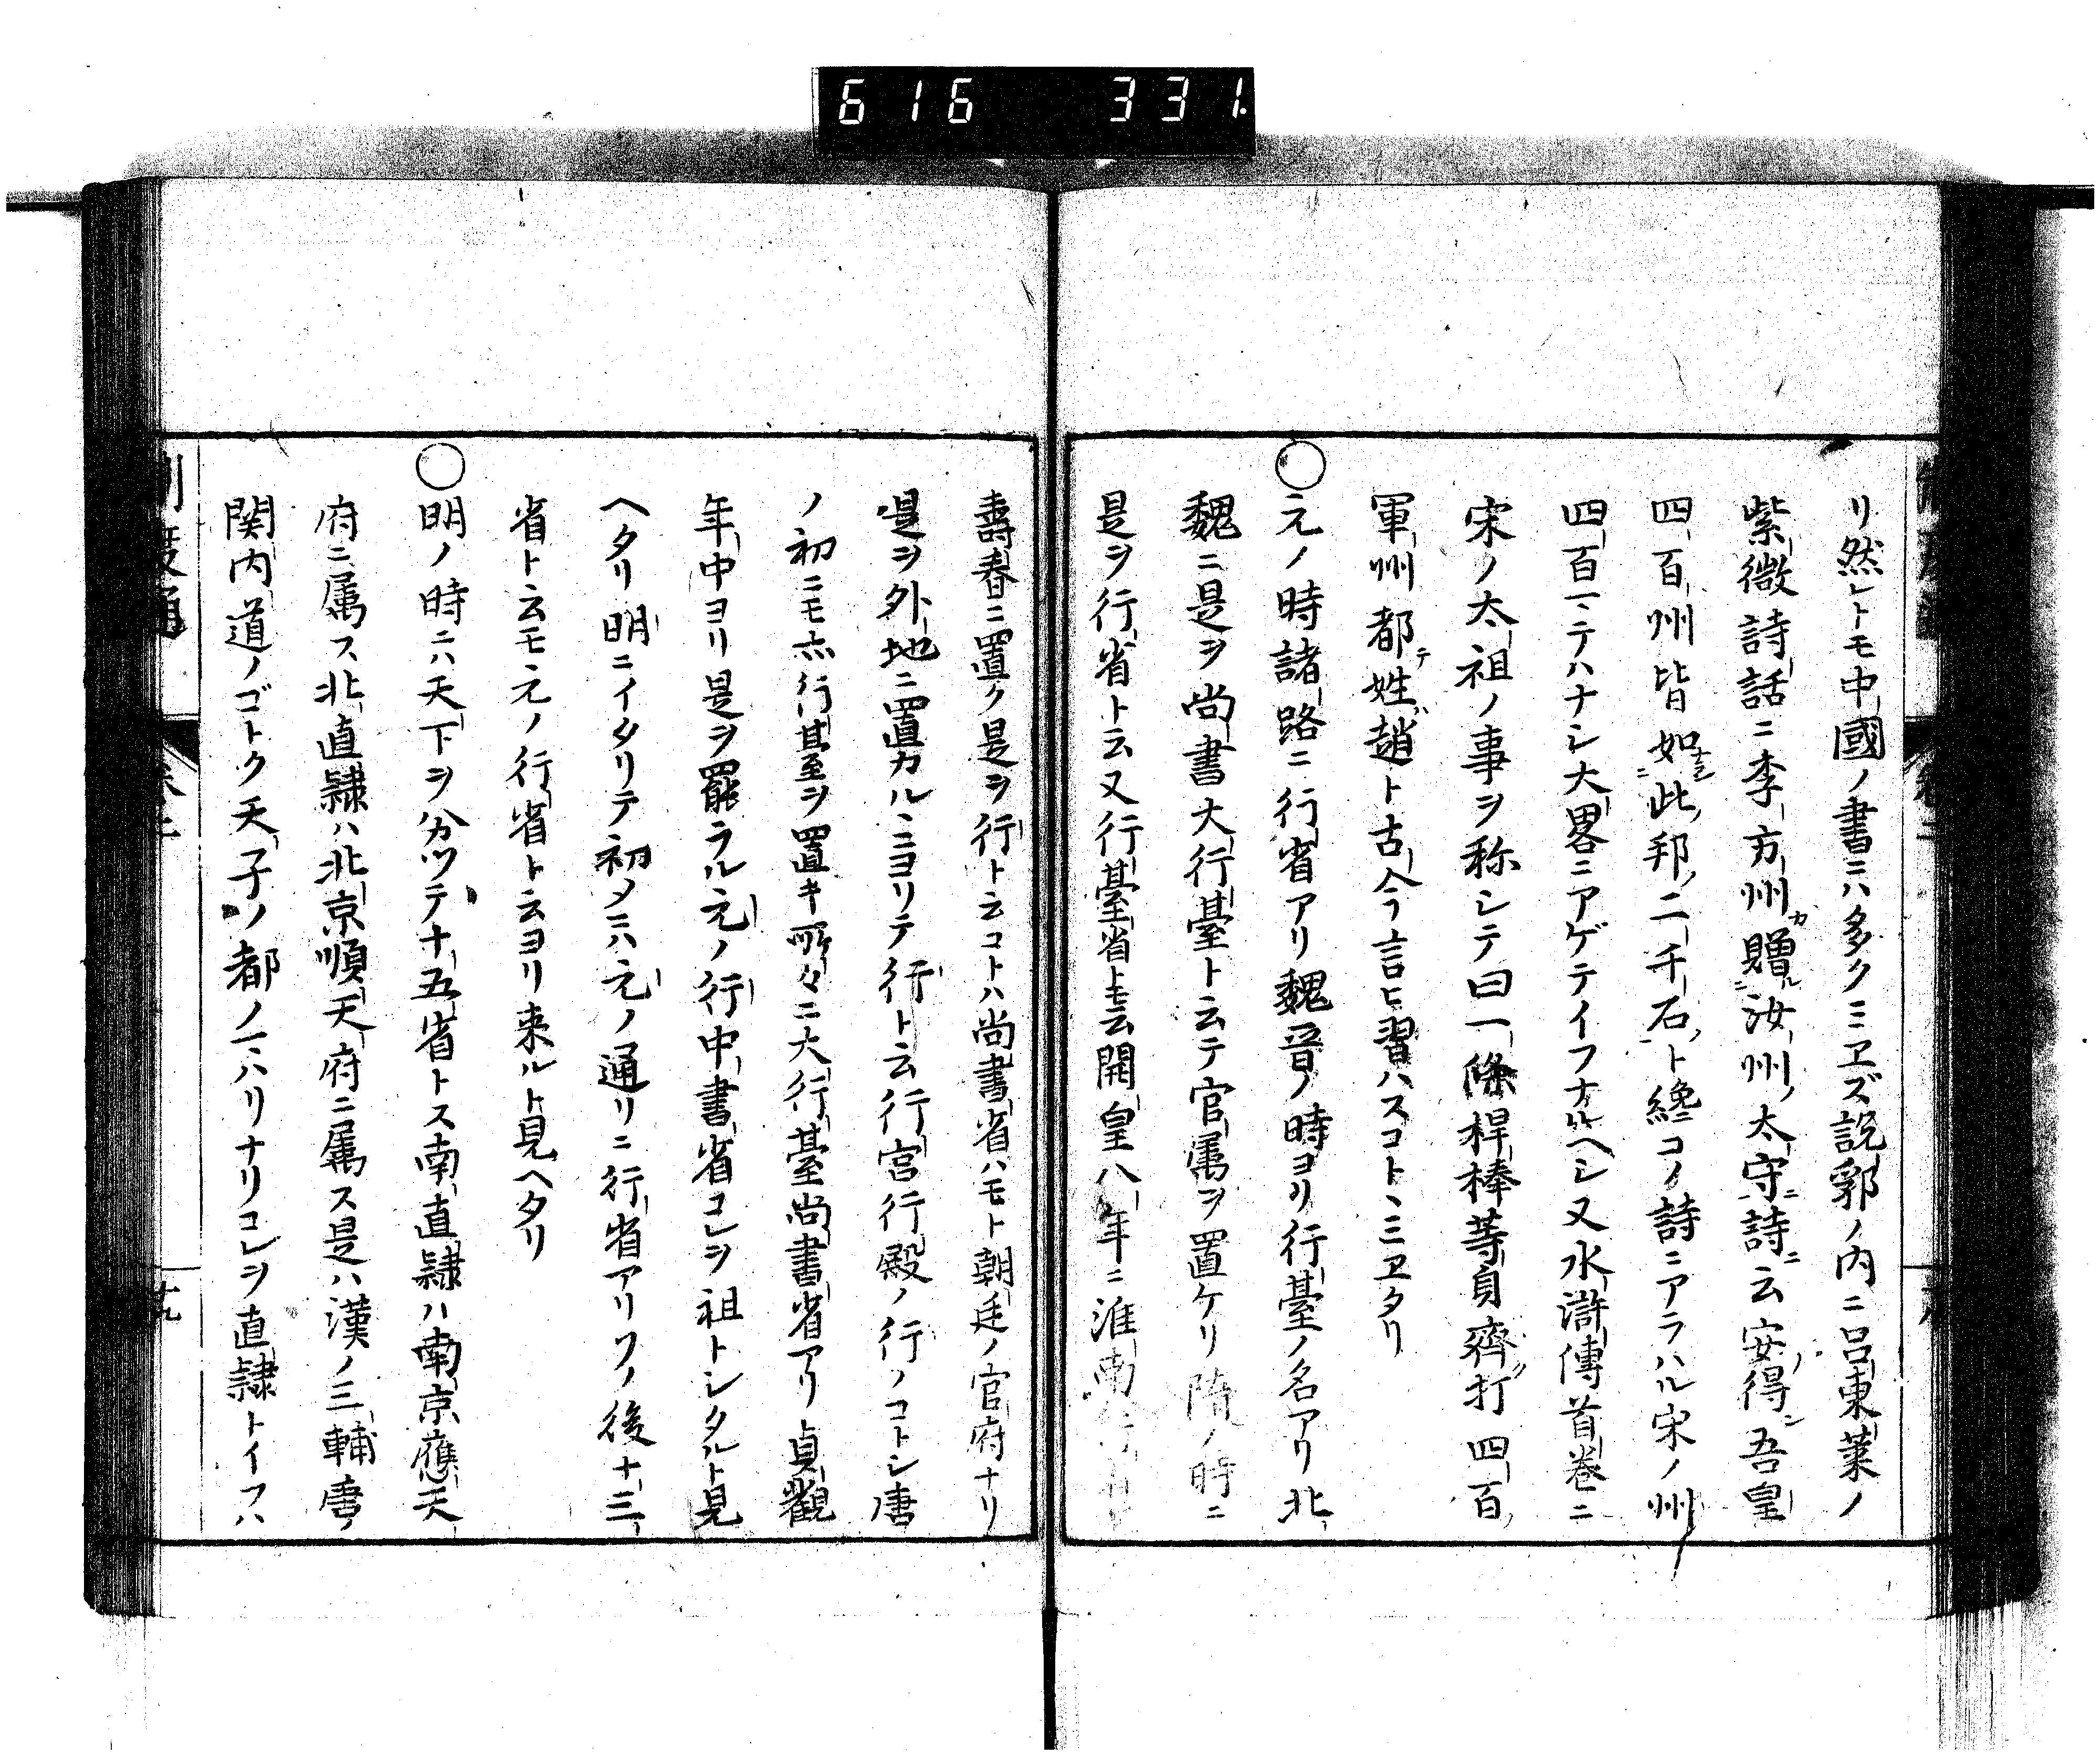 616 331
リ然レトモ中國ノ書ニハ多クミヱズ説郛ノ内ニ呂東莱ノ
紫微詩話ニ李方州カ贈ル汝州ノ太守ニ詩ニ云安得ン吾皇
四百州皆如ナランコト此邦ノ二千石ト纔ニコノ詩ニアラハル宋ノ州
四百ニテハナシ大畧ニアゲテイフナルヘシ又水滸傳首巻ニ
宋ノ太祖ノ事ヲ称シテ曰一條桿棒等身齊ク打四百
軍州都テ姓趙ト古今言ヒ習ハスコトヽミヱタリ
○元ノ時諸路ニ行省アリ魏晋ノ時ヨリ行臺ノ名アリ北
魏ニ是ヲ尚書大行臺ト云テ官属ヲ置ケリ隋ノ時ニ
是ヲ行省ト云又行臺省ト云開皇八年ニ淮南
壽春ニ置ク是ヲ行ト云コトハ尚書省ハモト朝廷ノ官府ナリ
是ヲ外地ニ置カルヽニヨリテ行ト云行宮行殿ノ行ノコトシ唐
ノ初ニモ亦行臺ヲ置キ所々ニ大行臺尚書省アリ貞觀
年中ヨリ是ヲ罷ラル元ノ行中書省コレヲ祖トシタルト見
ヘタリ明ニイタリテ初メニハ元ノ通リニ行省アリソノ後十三
省ト云モ元ノ行省ト云ヨリ来ルト見ヘタリ
○明ノ時ニハ天下ヲ分ツテ十五省トス南直隷ハ南京應天
府ニ属ス北直隷ハ北京順天府ニ属ス是ハ漢ノ三輔唐ノ
関内道ノゴトク天子ノ都ノマハリナリコレヲ直隷トイフハ